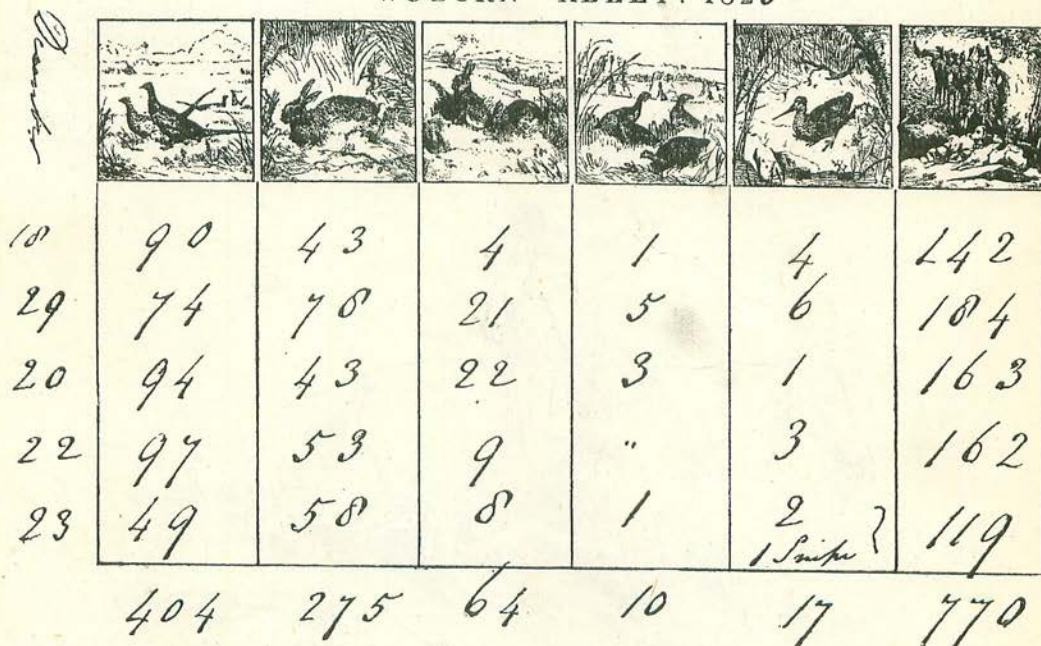 WOBURN ABBEY.
18 90 43 4 1 4 142
29 74 78 21 5 6 184
20 94 43 22 3 1 163
22 97 53 9 " 3 162
23 49 58 8 1 2 119
1 Snipe
404 275 64 10 17 770